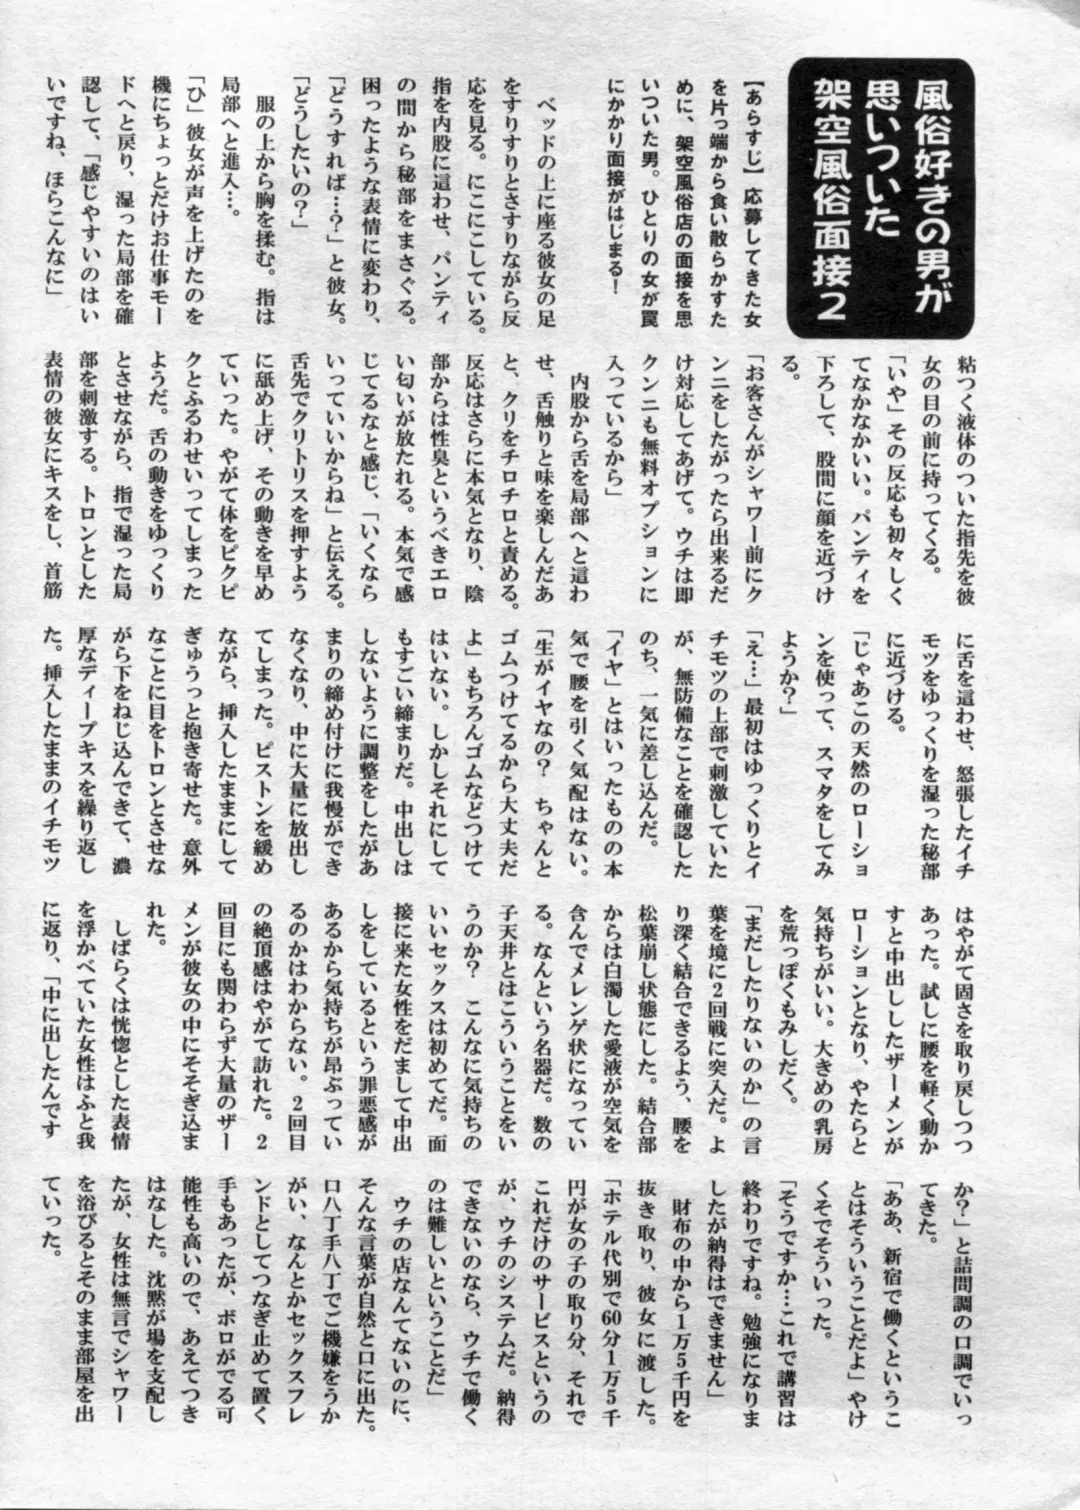 風俗好きの男が
思いついた
架空風俗面接2
【あらすじ】応募してきた女
を片っ端から食い散らかすた
めに、架空風俗店の面接を思
いついた男。ひとりの女が罠
にかかり面接がはじまる！
ベッドの上に座る彼女の足
をすりすりとさすりながら反
応を見る。にこにこしている。
指を内股に這わせ、パンティ
の間から秘部をまさぐる。
困ったような表情に変わり、
「どうすれば…？」と彼女。
「どうしたいの？」
服の上から胸を揉む。指は
局部へと進入…。
「ひ」彼女が声を上げたのを
機にちょっとだけお仕事モー
ドへと戻り、湿った局部を確
認して、「感じやすいのはい
いですね、ほらこんなに」
粘つく液体のついた指先を彼
女の目の前に持ってくる。
「いや」その反応も初々しく
てなかなかいい。パンティを
下ろして、股間に顔を近づけ
る。
「お客さんがシャワー前にク
ンニをしたがったら出来るだ
け対応してあげて。ウチは即
クンニも無料オプションに
入っているから」
内股から舌を局部へと這わ
せ、舌触りと味を楽しんだあ
と、クリをチロチロと責める。
反応はさらに本気となり、陰
部からは性臭というべきエロ
い匂いが放たれる。本気で感
じてるなと感じ、「いくなら
いっていいからね」と伝える。
舌先でクリトリスを押すよう
に舐め上げ、その動きを早め
ていった。やがて体をピクピ
クとふるわせいってしまった
ようだ。舌の動きをゆっくり
とさせながら、指で湿った局
部を刺激する。トロンとした
表情の彼女にキスをし、首筋
に舌を這わせ、怒張したイチ
モツをゆっくりを湿った秘部
に近づける。
「じゃあこの天然のローショ
ンを使って、スマタをしてみ
ようか？」
「え…」最初はゆっくりとイ
チモツの上部で刺激していた
が、無防備なことを確認した
のち、一気に差し込んだ。
「イヤ」とはいったものの本
気で腰を引く気配はない。
「生がイヤなの？　ちゃんと
ゴムつけてるから大丈夫だ
よ」もちろんゴムなどつけて
はいない。しかしそれにして
もすごい締まりだ。中出しは
しないように調整をしたがあ
まりの締め付けに我慢ができ
なくなり、中に大量に放出し
てしまった。ピストンを緩め
ながら、挿入したままにして
ぎゅうっと抱き寄せた。意外
なことに目をトロンとさせな
がら下をねじ込んできて、濃
厚なディープキスを繰り返し
た。挿入したままのイチモツ
はやがて固さを取り戻しつつ
あった。試しに腰を軽く動か
すと中出ししたザーメンが
ローションとなり、やたらと
気持ちがいい。大きめの乳房
を荒っぽくもみしだく。
「まだしたりないのか」の言
葉を境に2回戦に突入だ。よ
り深く結合できるよう、腰を
松葉崩し状態にした。結合部
からは白濁した愛液が空気を
含んでメレンゲ状になってい
る。なんという名器だ。数の
子天井とはこういうことをい
うのか？　こんなに気持ちの
いいセックスは初めてだ。面
接に来た女性をだまして中出
しをしているという罪悪感が
あるから気持ちが昂ぶってい
るのかはわからない。2回目
の絶頂感はやがて訪れた。2
回目にも関わらず大量のザー
メンが彼女の中にそそぎ込ま
れた。
しばらくは恍惚とした表情
を浮かべていた女性はふと我
に返り、「中に出したんです
か？」と詰問調の口調でいっ
てきた。
「ああ、新宿で働くというこ
とはそういうことだよ」やけ
くそでそういった。
「そうですか…これで講習は
終わりですね。勉強になりま
したが納得はできません」
財布の中から1万5千円を
抜き取り、彼女に渡した。
「ホテル代別で60分1万5千
円が女の子の取り分、それで
これだけのサービスというの
が、ウチのシステムだ。納得
できないのなら、ウチで働く
のは難しいということだ」
ウチの店なんてないのに、
そんな言葉が自然と口に出た。
口八丁手八丁でご機嫌をうか
がい、なんとかセックスフレ
ンドとしてつなぎ止めて置く
手もあったが、ボロがでる可
能性も高いので、あえてつき
はなした。沈黙が場を支配し
たが、女性は無言でシャワー
を浴びるとそのまま部屋を出
ていった。